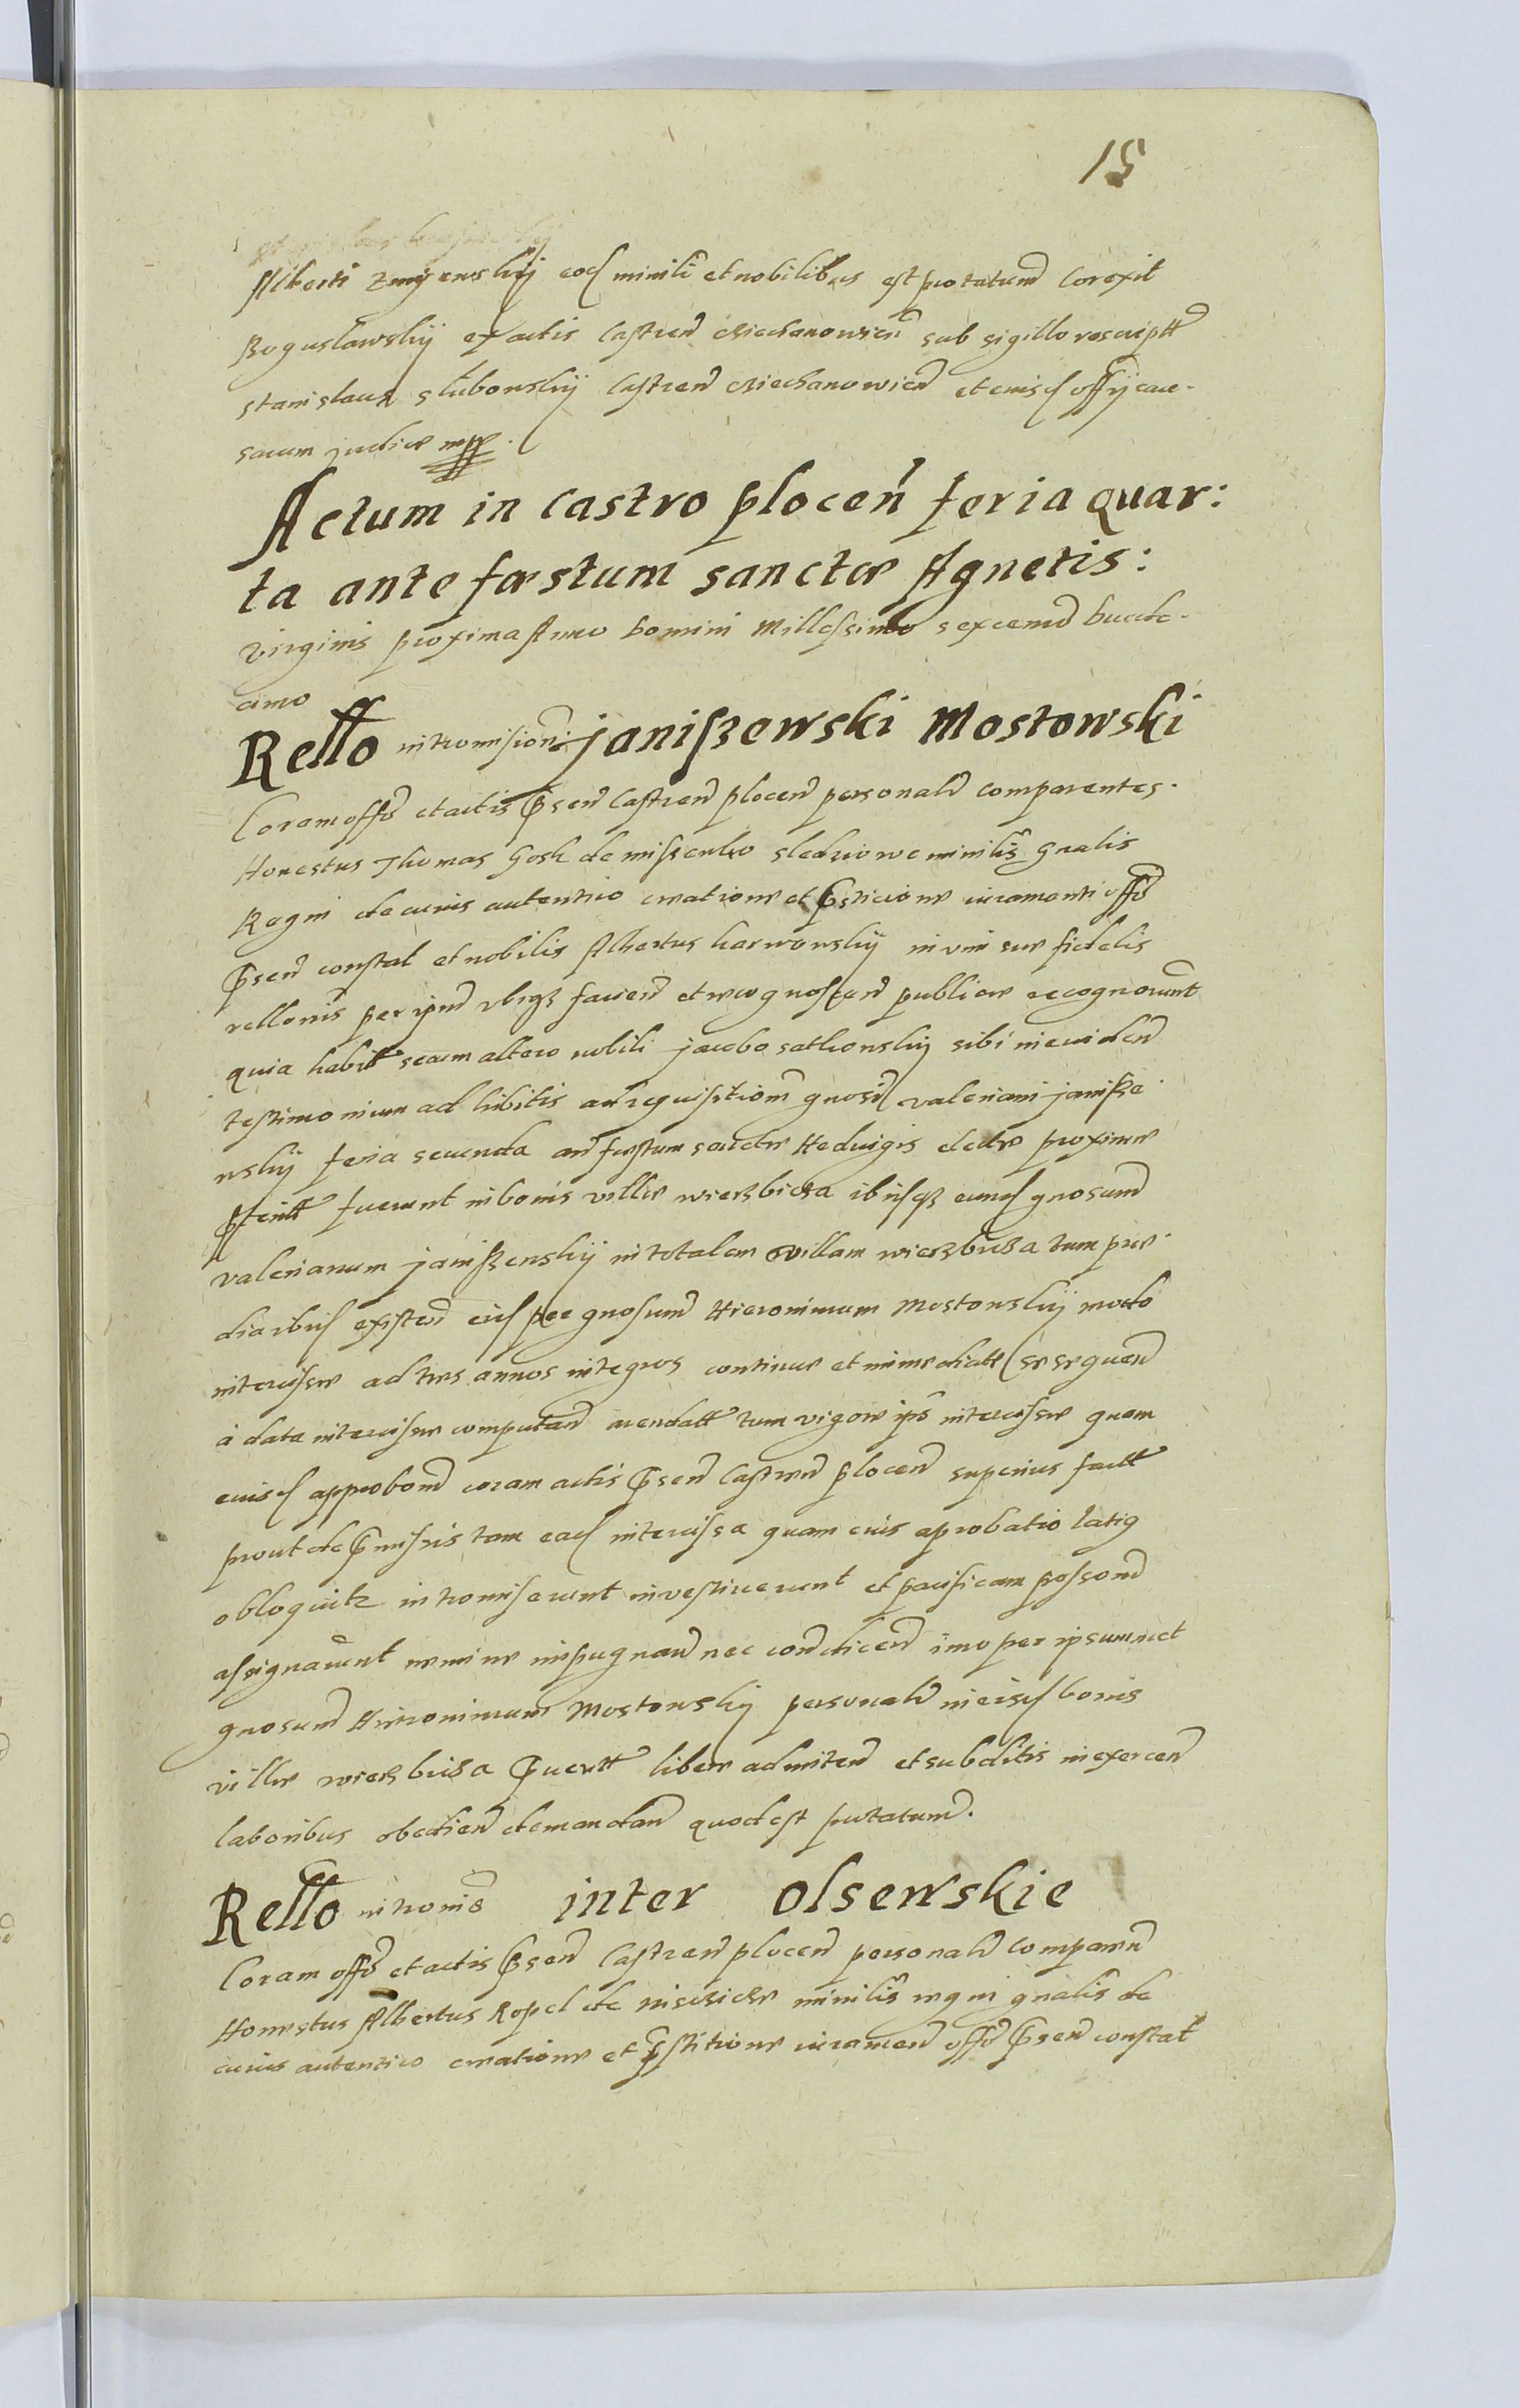 15
Alberti Zmijewskij eod minili et nobilibus est protatum Corexit
Boguslawskij ex actis Castren Cziechanowien sub sigillo rescriptt
Stanislaus Slubowskij Castren Cziechanowien et eiusd offij cau-
sarum judice mpp.
Actum in castro plocen feria quar:
ta ante fæstum sanctæ Agnetis:
virginis proxima Anno Domini Millessimo sexcemo duode-
cimo
Rello intromisioni janiszewski Mostowski
Coram offo et actis Psen Castren plocen personalr comparentes.
Honestus Thomas Gosk de miszewko sledziowe minilis Gnalis
Regni de cuius autentico creatione et Psticione iuramenti offo
Psen constat et nobilis Albertus karwowskij in vim suæ fidelis
rellonis per ipm ubiqz faciend et recognoscend publice recognorunt
quia habitt secum altero nobili jacobo sathowskij sibi in eviden
testimonium ad hibitis ad requisitionem gnosi valeriani janisze
wskij feria secunda an fæstum sanctæ Hedvigis electæ proxime
Pteritt fuerunt in bonis villæ wierzbicza ibiisqz eund gnosum
valerianum janiszewskij in totalem villam wierzbicza tum præ-
diaribus existen eid per gnosum Hieronimum Mostowskij modo
intercisæ ad tres annos integros continue et immediatte se sequen
à data intercisæ computan arendatt tum vigore ips intercisæ quam
eiusd approbom coram actis Psen Castren plocen superius factt
prout de Pmissis tam ead intercisa quam eius aprobatio latig
obloquitr intromiserunt investiverunt et pacificam possom
assignarunt nemine impugnan nec condicen imo per ipsummet
gnosum Hieronimum Mostowskij personalr in eisd bonis
villæ wierzbicza Puentt libere admiten et subditis in exercen
laboribus obedien demandan quod est protatum.
Rello intromis inter olsewskie
Coram offo et actis Psen Castren plocen personalr comparen
Honestus Albertus Ropel de niscicze minilis regni gnalis de
cuius autentico creatione et Pstitione iuramen offo Psen constat